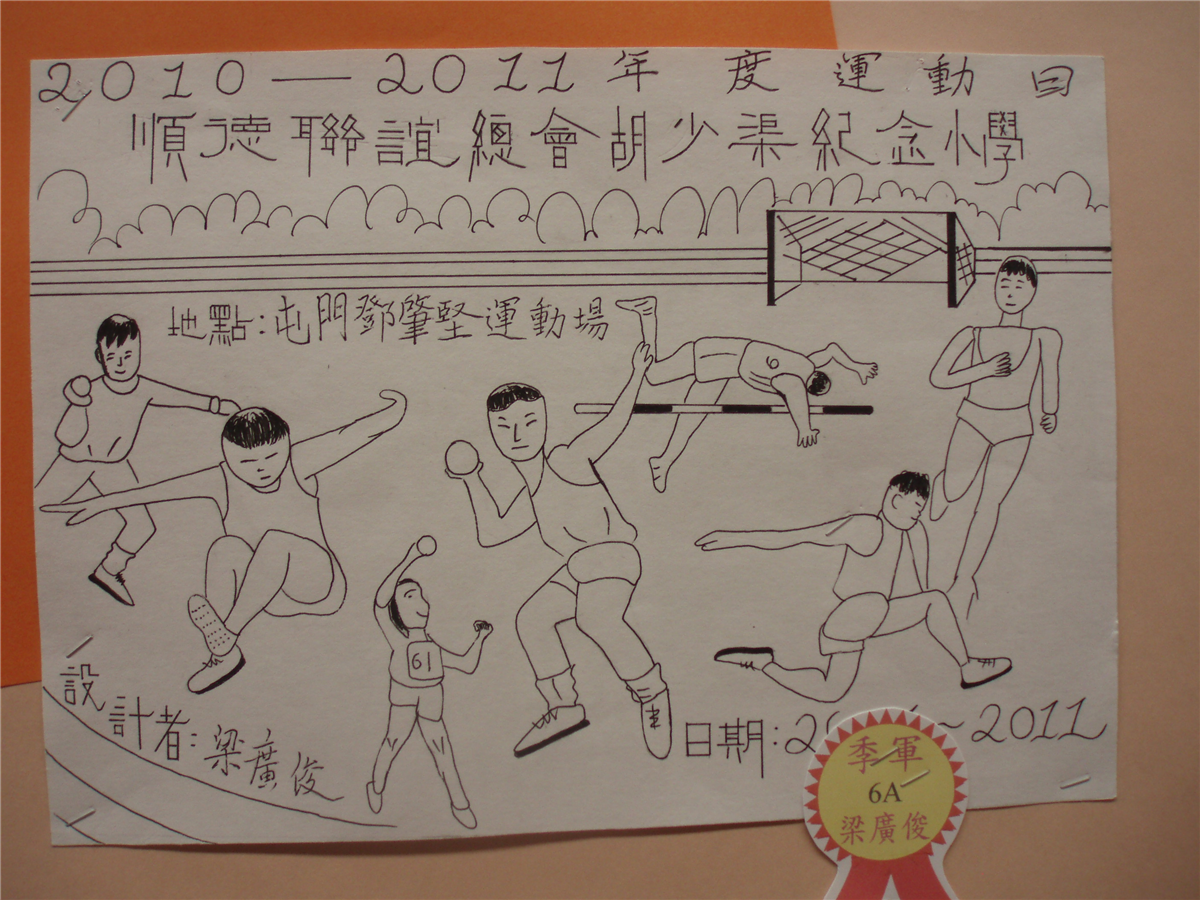 2010—2011年度運動日
順德聯誼總會胡少渠紀念小學
地點:屯門鄧肇堅運動場
6
61
設計者:梁廣俊
日期:2 ~2011
季軍
6A
梁廣俊